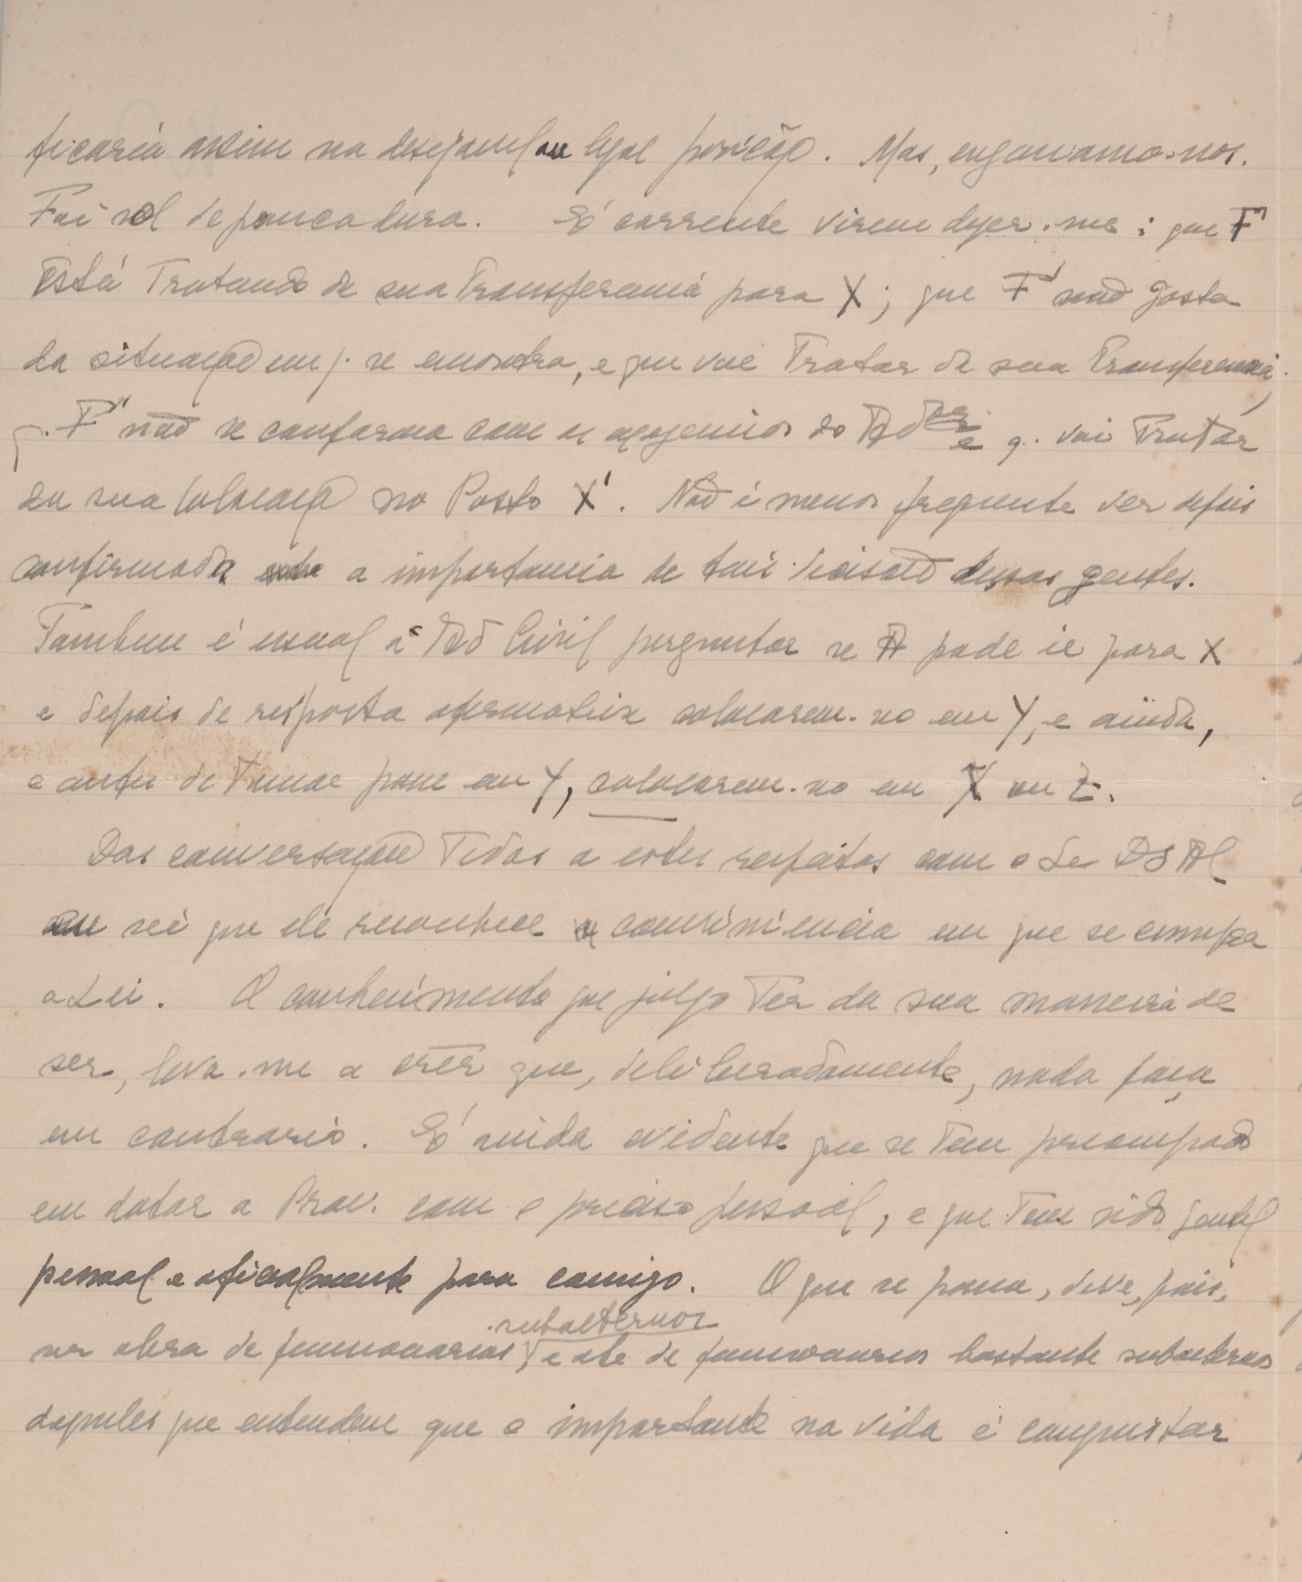 ficaria assim na desejavel ou legal posição. Mas, enganamo-nos.
Foi sol de pouca dura. É corrente virem dizer-me: que F
está tratando de sua transferencia para X; que F' não gosta
da situação em q. se encontra, e que vai tratar de sua transferencia;
q. F'' não se conforma com as do e q. vai tratar
da sua colocação no Posto X'. Não é menos frequente ver depois
confirmada a importancia de tais dessas gentes.
Tambem é usual a Civil perguntar se A pode ir para X
e depois de resposta afirmativa colocarem-no em Y, e ainda,
e antes de tomar posse em Y, colocarem-no em X ou Z.
Das conversações tidas a estes respeitos com o
eu sei que ele reconhece a conveniencia em que se cumpra
a Lei. O conhecimento que julgo ter da sua maneira de
ser, leva-me a crêr que, deliberadamente, nada faça
em contrario. É ainda evidente que se tem preocupado
em dotar a Prov. com o preciso pessoal, e que tem sido gentil
pessoal e oficialmente para comigo. O que se passa, deve, pois,
subalternos
ser obra de funcionarios e até de funcionarios bastante subalternos
daqueles que entendem que o importante na vida é conquistar